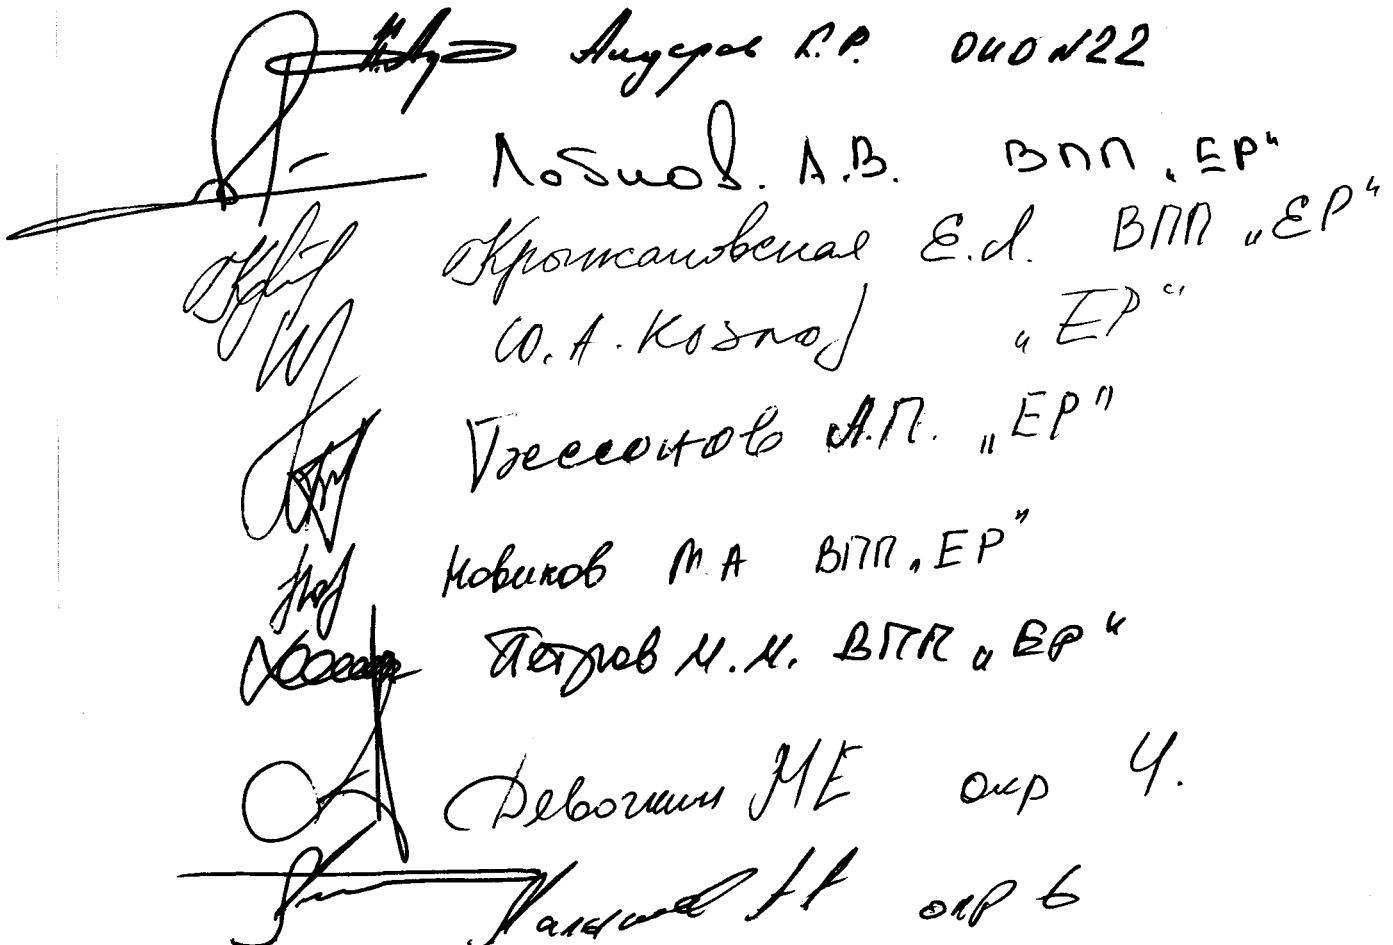 ОИО N22
Лобтов. А.В. ВПП „ЕР“
Крыжановская Е.А. ВПП „ЕР“
Ю.А. Козлов „ЕР“
Бессонов А.П. „ЕР“
Новиков М.А ВПП „ЕР“
Петров М.М. ВПП „ЕР“
Девочкин МЕ окр 4.
окр 6